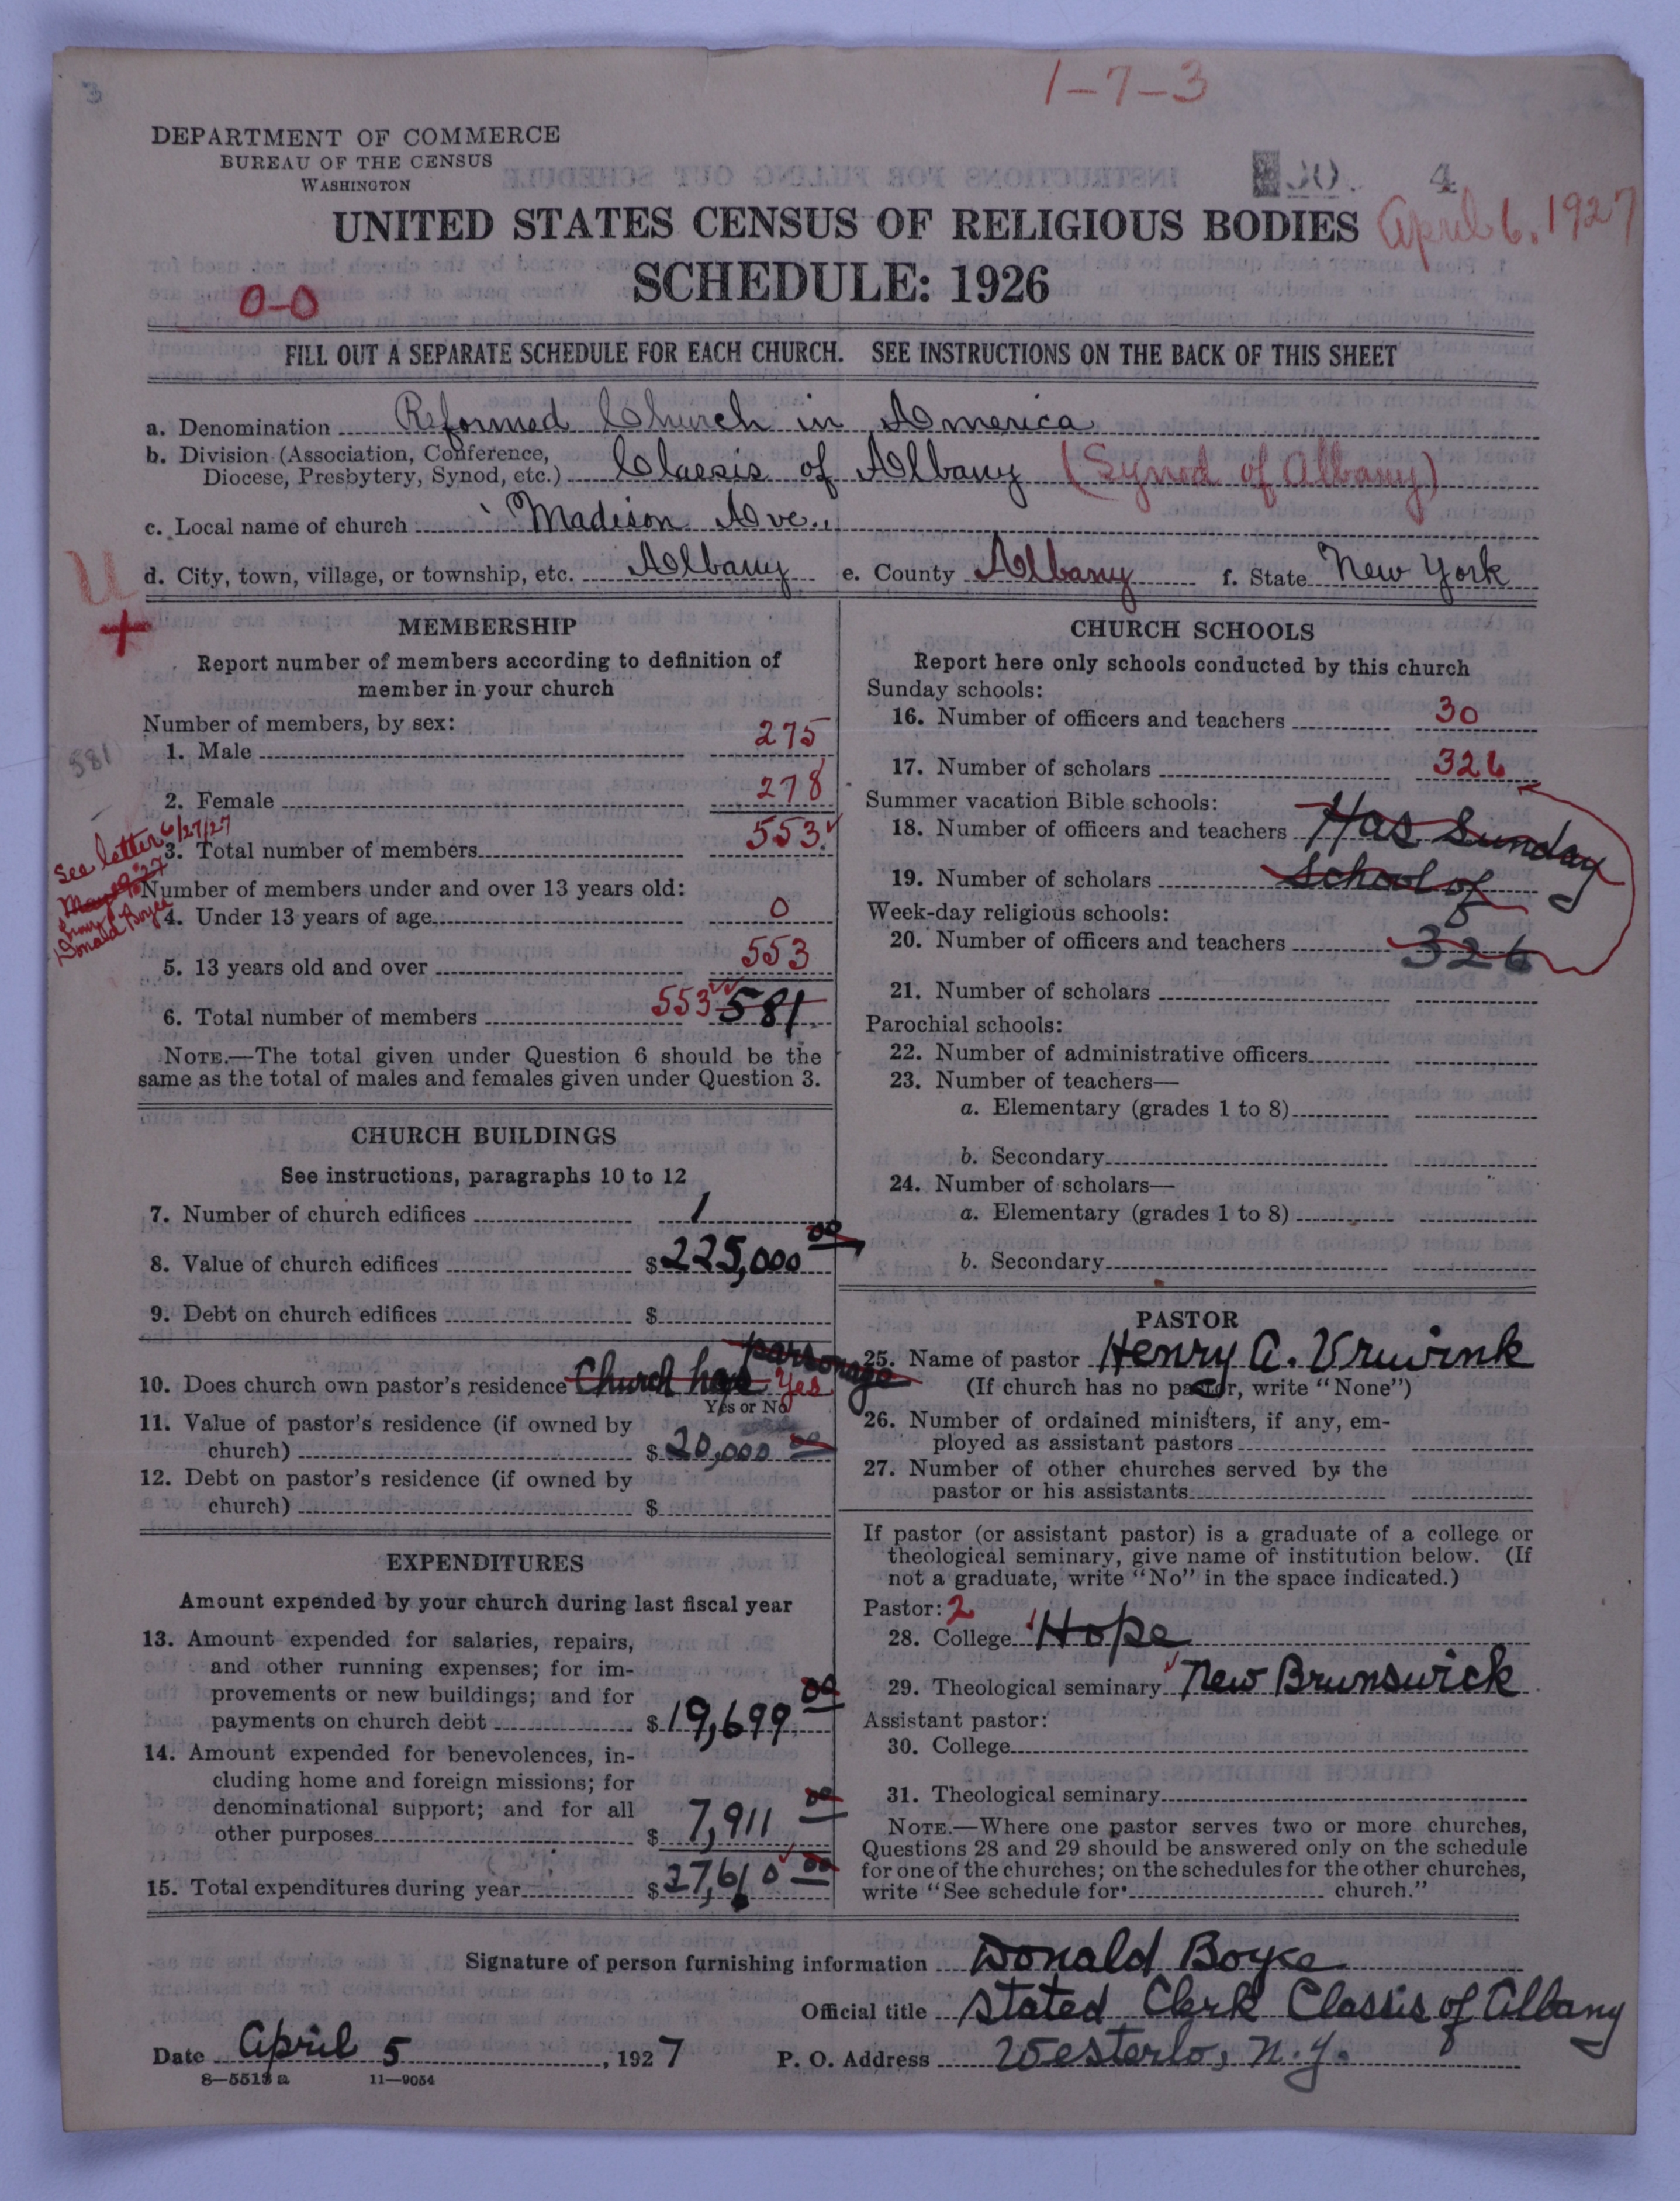 3
1-7-3
DEPARTMENT OF COMMERCE
BUREAU OF THE CENSUS
WASHINGTON
30. 4
UNITED STATES CENSUS OF RELIGIOUS BODIES
April 6, 1927
SCHEDULE: 1926
0-0
FILL OUT A SEPARATE SCHEDULE FOR EACH CHURCH. SEE INSTRUCTIONS ON THE BACK OF THIS SHEET
a. Denomination Reformed Church in America
b. Division (Association, Conference,
Diocese, Presbytery, Synod, etc.) Classis of Albany (Synod of Albany)
c. Local name of church Madison Ave.
d. City, town, village, or township, etc. Albany e. County Albany f. State New York
U
+
MEMBERSHIP
Report number of members according to definition of
member in your church
Number of members, by sex:
1. Male 275
581
2. Female 278
3. Total number of members 553
See letter 6/27/27
from
Donald Boyce
Number of members under and over 13 years old:
4. Under 13 years of age 0
5. 13 years old and over 553
6. Total number of members 553 581
NOTE.—The total given under Question 6 should be the
same as the total of males and females given under Question 3.
CHURCH BUILDINGS
See instructions, paragraphs 10 to 12
7. Number of church edifices 1
8. Value of church edifices $225,000 00
9. Debt on church edifices $
10. Does church own pastor's residence Church has parsonage Yes
Yes or No
11. Value of pastor's residence (if owned by
church) $20,000 00
12. Debt on pastor's residence (if owned by
church) $
EXPENDITURES
Amount expended by your church during last fiscal year
13. Amount expended for salaries, repairs,
and other running expenses; for im-
provements or new buildings; and for
payments on church debt $19,699 00
14. Amount expended for benevolences, in-
cluding home and foreign missions; for
denominational support; and for all
other purposes $7,911 00
15. Total expenditures during year $27,610 00
CHURCH SCHOOLS
Report here only schools conducted by this church
Sunday schools:
16. Number of officers and teachers 30
17. Number of scholars 326
Summer vacation Bible schools:
18. Number of officers and teachers Has Sunday
19. Number of scholars School of
Week-day religious schools:
20. Number of officers and teachers 326
21. Number of scholars
Parochial schools:
22. Number of administrative officers
23. Number of teachers—
a. Elementary (grades 1 to 8)
b. Secondary
24. Number of scholars—
a. Elementary (grades 1 to 8)
b. Secondary
PASTOR
25. Name of pastor Henry A. Vruwink
(If church has no pastor, write "None")
26. Number of ordained ministers, if any, em-
ployed as assistant pastors
27. Number of other churches served by the
pastor or his assistants
If pastor (or assistant pastor) is a graduate of a college or
theological seminary, give name of institution below. (If
not a graduate, write "No" in the space indicated.)
Pastor: 2
28. College Hope
29. Theological seminary New Brunswick
Assistant pastor:
30. College
31. Theological seminary
NOTE.—Where one pastor serves two or more churches,
Questions 28 and 29 should be answered only on the schedule
for one of the churches; on the schedules for the other churches,
write "See schedule for church."
Signature of person furnishing information Donald Boyce
Official title Stated Clerk Classis of Albany
Date April 5, 1927 P. O. Address Westerlo, N.Y.
8—5513a 11—9054